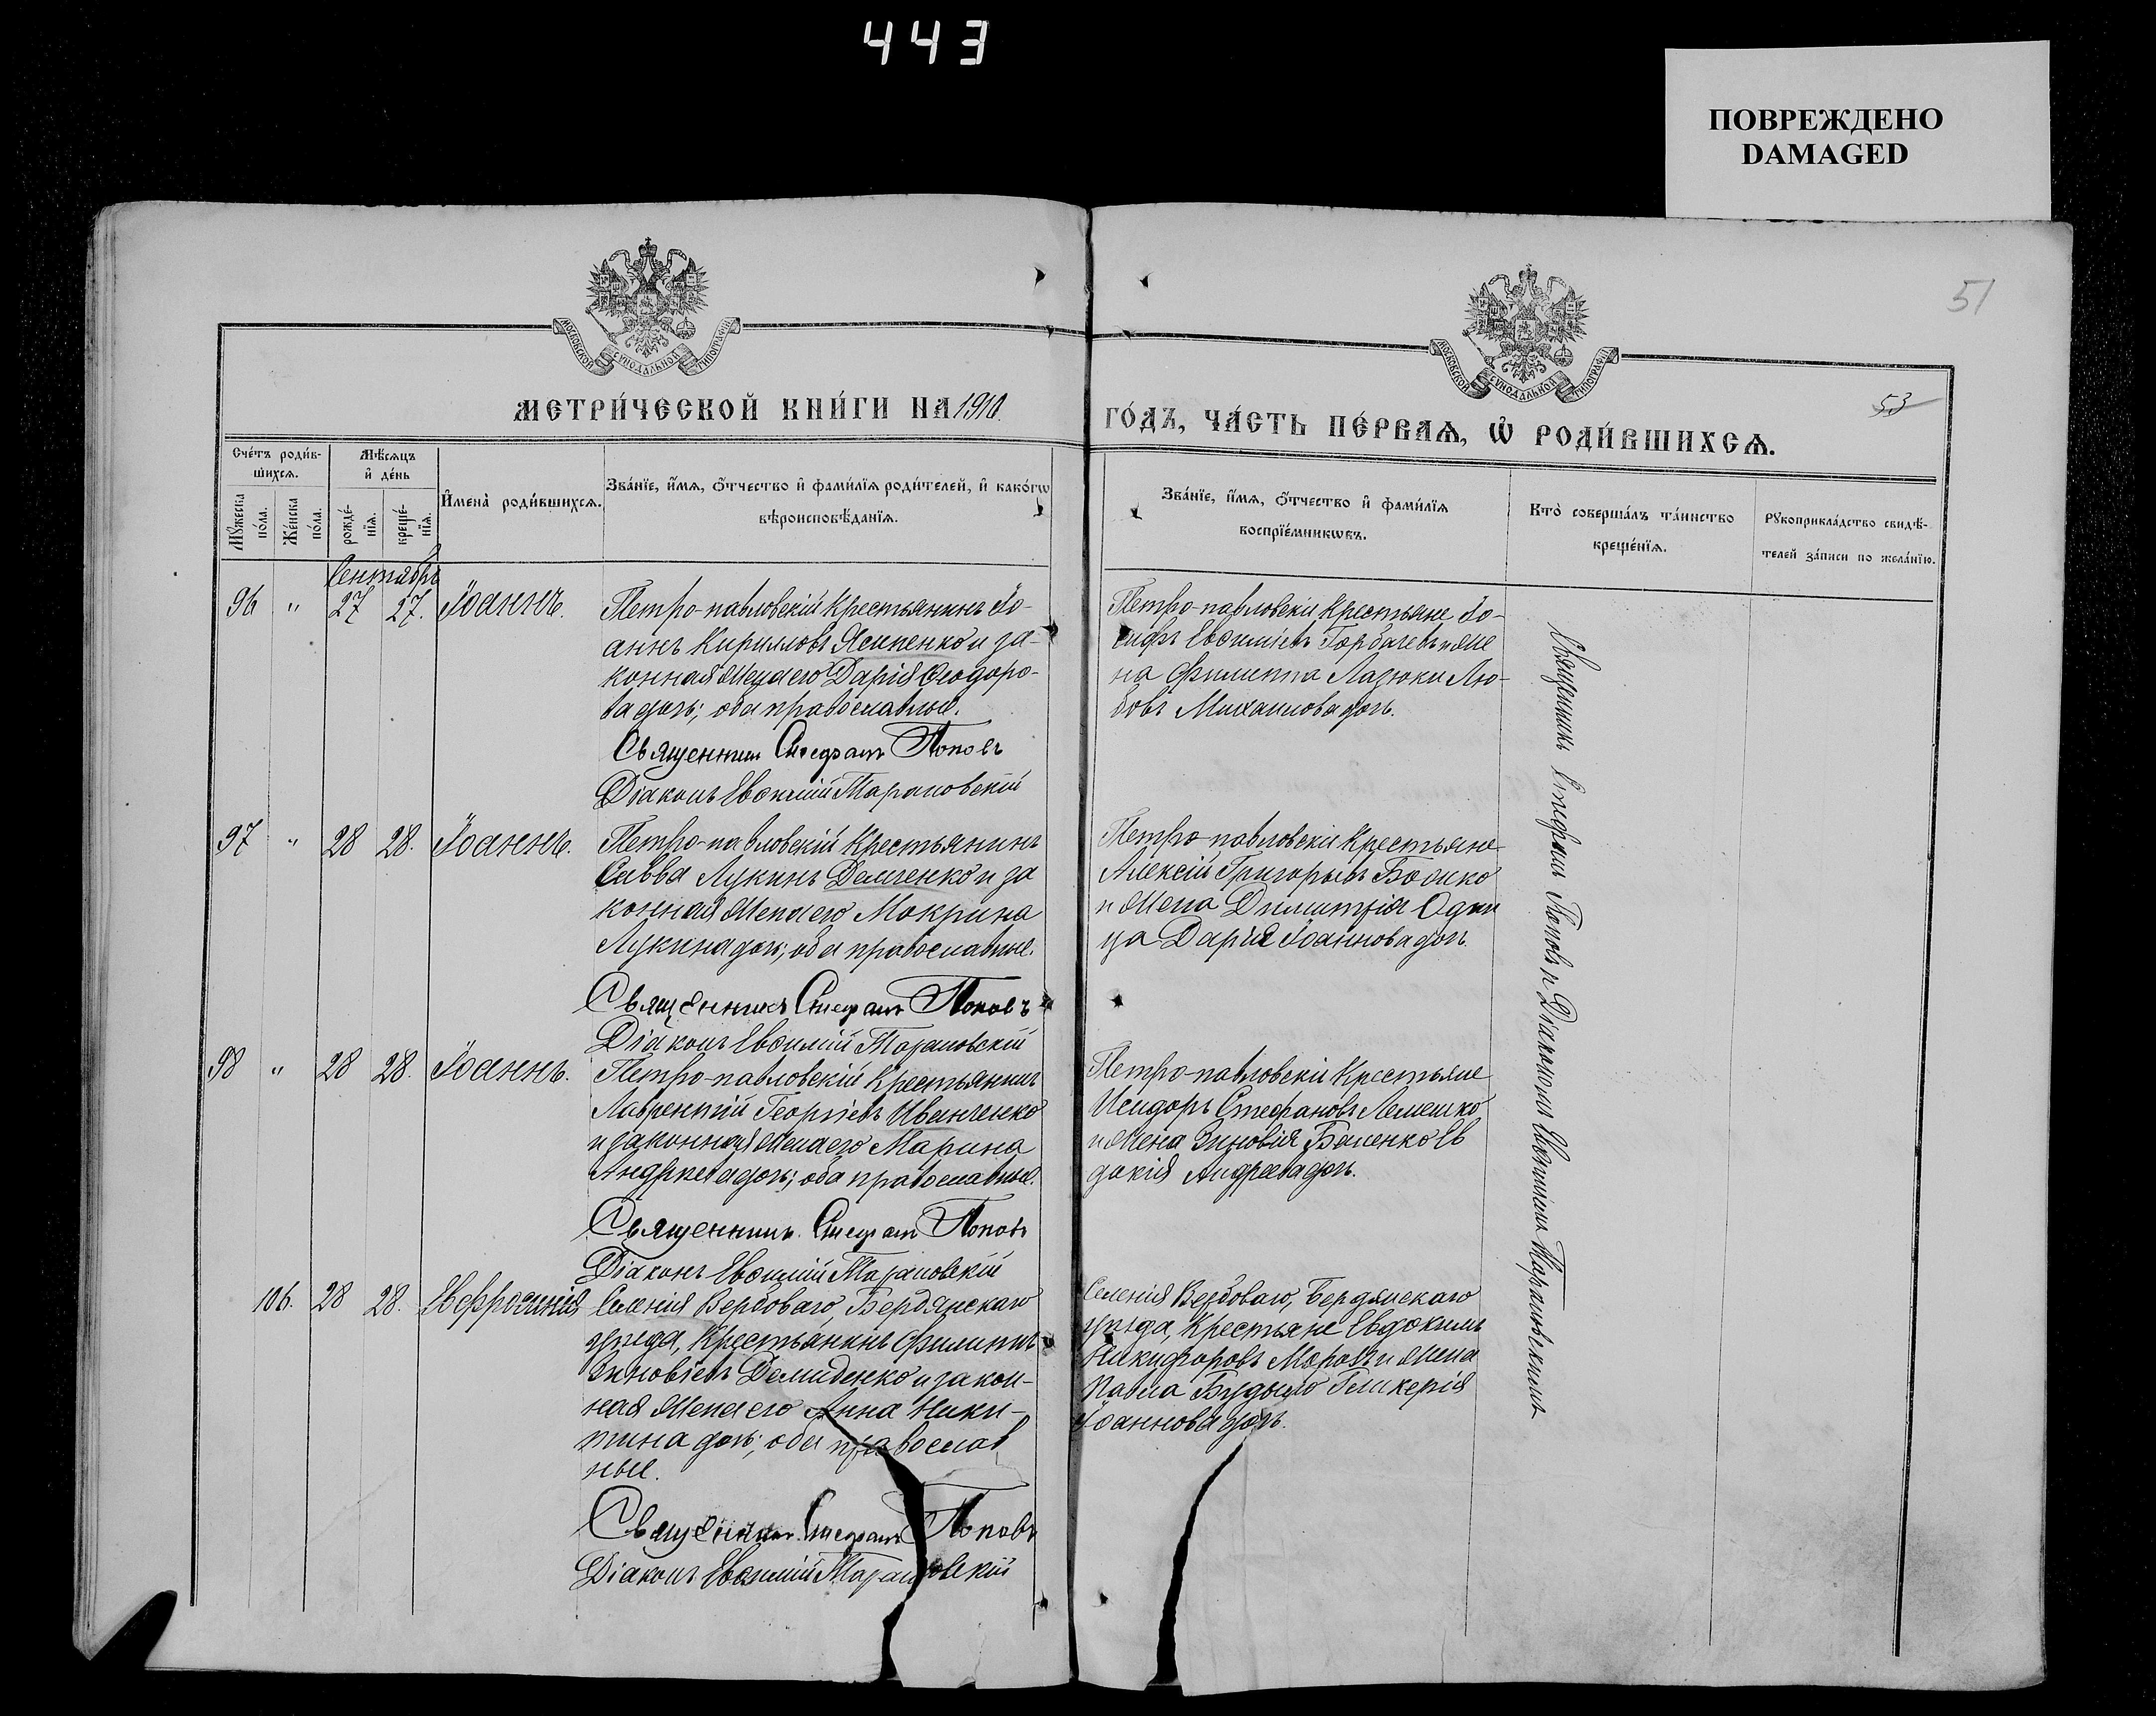 443
ПОВРЕЖДЕНО
DAMAGED
51
МОСКОВСКОЙ СѴНОДАЛЬНОЙ ТИПОГРАФІИ
МОСКОВСКОЙ СѴНОДАЛЬНОЙ ТИПОГРАФІИ
53
МЕТРИ́ЧЕСКОЙ КНИ́ГИ НА 1910.
ГО́ДЪ, ЧА́СТЬ ПЕ́РВАѦ, Ѡ҆ РОДИ́ВШИХСѦ.
Сче́тъ роди́в-
шихсѧ.
Мѣ́сѧцъ
и҆ де́нь
Мꙋ́жеска
по́ла.
Же́нска
по́ла.
рожде́-
нїѧ.
креще́-
нїѧ.
И҆мена̀ роди́вшихсѧ.
Зва́нїе, и҆́мѧ, ѻ҆́тчество и҆ фами́лїѧ роди́телей, и҆ како́гѡ
вѣроисповѣ́данїѧ.
Зва́нїе, и҆́мѧ, ѻ҆́тчество и҆ фами́лїѧ
воспрїе́мникѡвъ.
Кто̀ соверша́лъ та́инство
креще́нїѧ.
Рꙋкоприкла́дство свидѣ́-
телей за́писи по жела́нїю.
Сентябрь
96 " 27 27. Іоаннъ.
Петро-павловскій Крестьянинъ Іо-
аннъ Кирилловъ Ясипенко и за-
конная Жена его Дарія Ѳеодоро-
ва дочь; оба православные.
Священникъ Стефанъ Поповъ
Діаконъ Евѳимій Тарановскій
Петро-павловскіи Крестьяне Іо-
сифъ Евѳиміевъ Горбачевъ и Же
на Филиппа Лазюки Лю-
бовь Михаилова дочь.
97 " 28 28. Іоаннъ.
Петро-павловскій Крестьянинъ
Савва Лукинъ Демченко и за
конная Жена его Мокрина
Лукина дочь; оба православные.
Священникъ Стефанъ Поповъ
Діаконъ Евѳимій Тарановскій
Петро-павловскіи Крестьяне
Алексій Григорьевъ Божко
и Жена Димитрія Один
ца Дарія Іоаннова дочь.
98 " 28 28. Іоаннъ.
Петро-павловскій Крестьянинъ
Лаврентій Георгіевъ Иванченко
и законная Жена его Марина
Андреева дочь; оба православные.
Священникъ Стефанъ Поповъ
Діаконъ Евѳимій Тарановскій
Петро-павловскіи Крестьяне
Исидоръ Стефановъ Лемешко
и Жена Зиновія Баленко Ев
докія Андреева дочь.
106. 28 28. Евфросинія
Селенія Вербоваго, Бердянскаго
уѣзда, Крестьянинъ Филиппъ
Зиновіевъ Демиденко и закон-
ная Жена его Анна Ники-
тина дочь; оба православ
ные.
Священникъ Стефанъ Поповъ
Діаконъ Евѳимій Тарановскій
Селенія Вербоваго, Бердянскаго
уѣзда, Крестьяне Евдокимъ
Никифоровъ Морозъ и Жена
Павла Будыло Гликерія
Іоаннова дочь.
Священникъ Стефанъ Поповъ и Діакономъ Евѳиміемъ Тарановскимъ